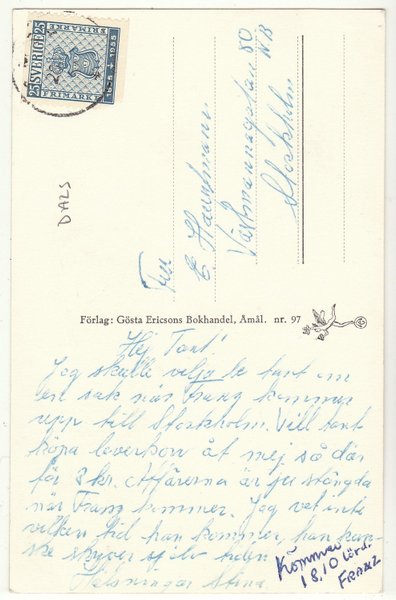 25 SVERIGE 25
FRIMÄRKE
1855 1955
FRIMÄRKE
DALS
Fru
E Hauptmann
Västmannagatan 80
Stockholm
Förlag: Gösta Ericsons Bokhandel, Åmål. nr. 97
Hej Tant!
Jag skulle vilja be tant om
en sak när Franz kommer
upp till Stockholm. Vill tant
köpa leverkorv åt mej så där
för 3 kr. Affärerna är ju stängda
när Franz kommer. Jag vet inte
vilken tid han kommer, han kan-
ske skriver själv
Hälsningar Stina
Kommer
18,10 lörd.
FRANZ